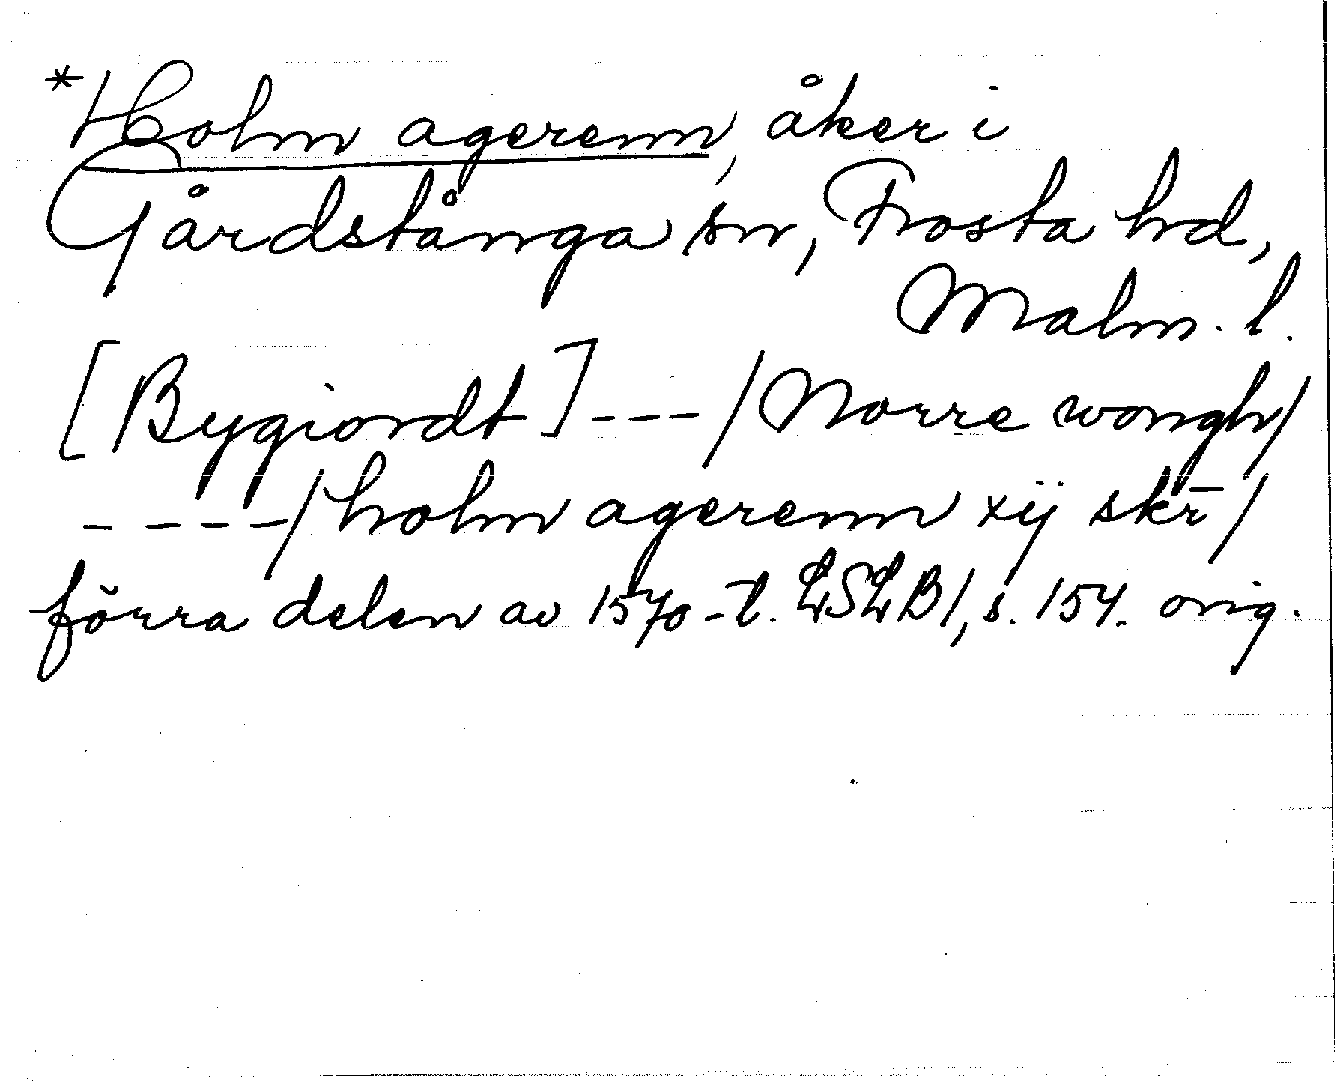 *Holm agerenn, åker i
Gårdstånga sn, Frosta hd,
Malm. l.
[Bygiordt] --- / Norre wongh /
---- / holm agerenn xij skr̄ /
förra delen av 1570-t. LSLB 1, s. 154. orig.